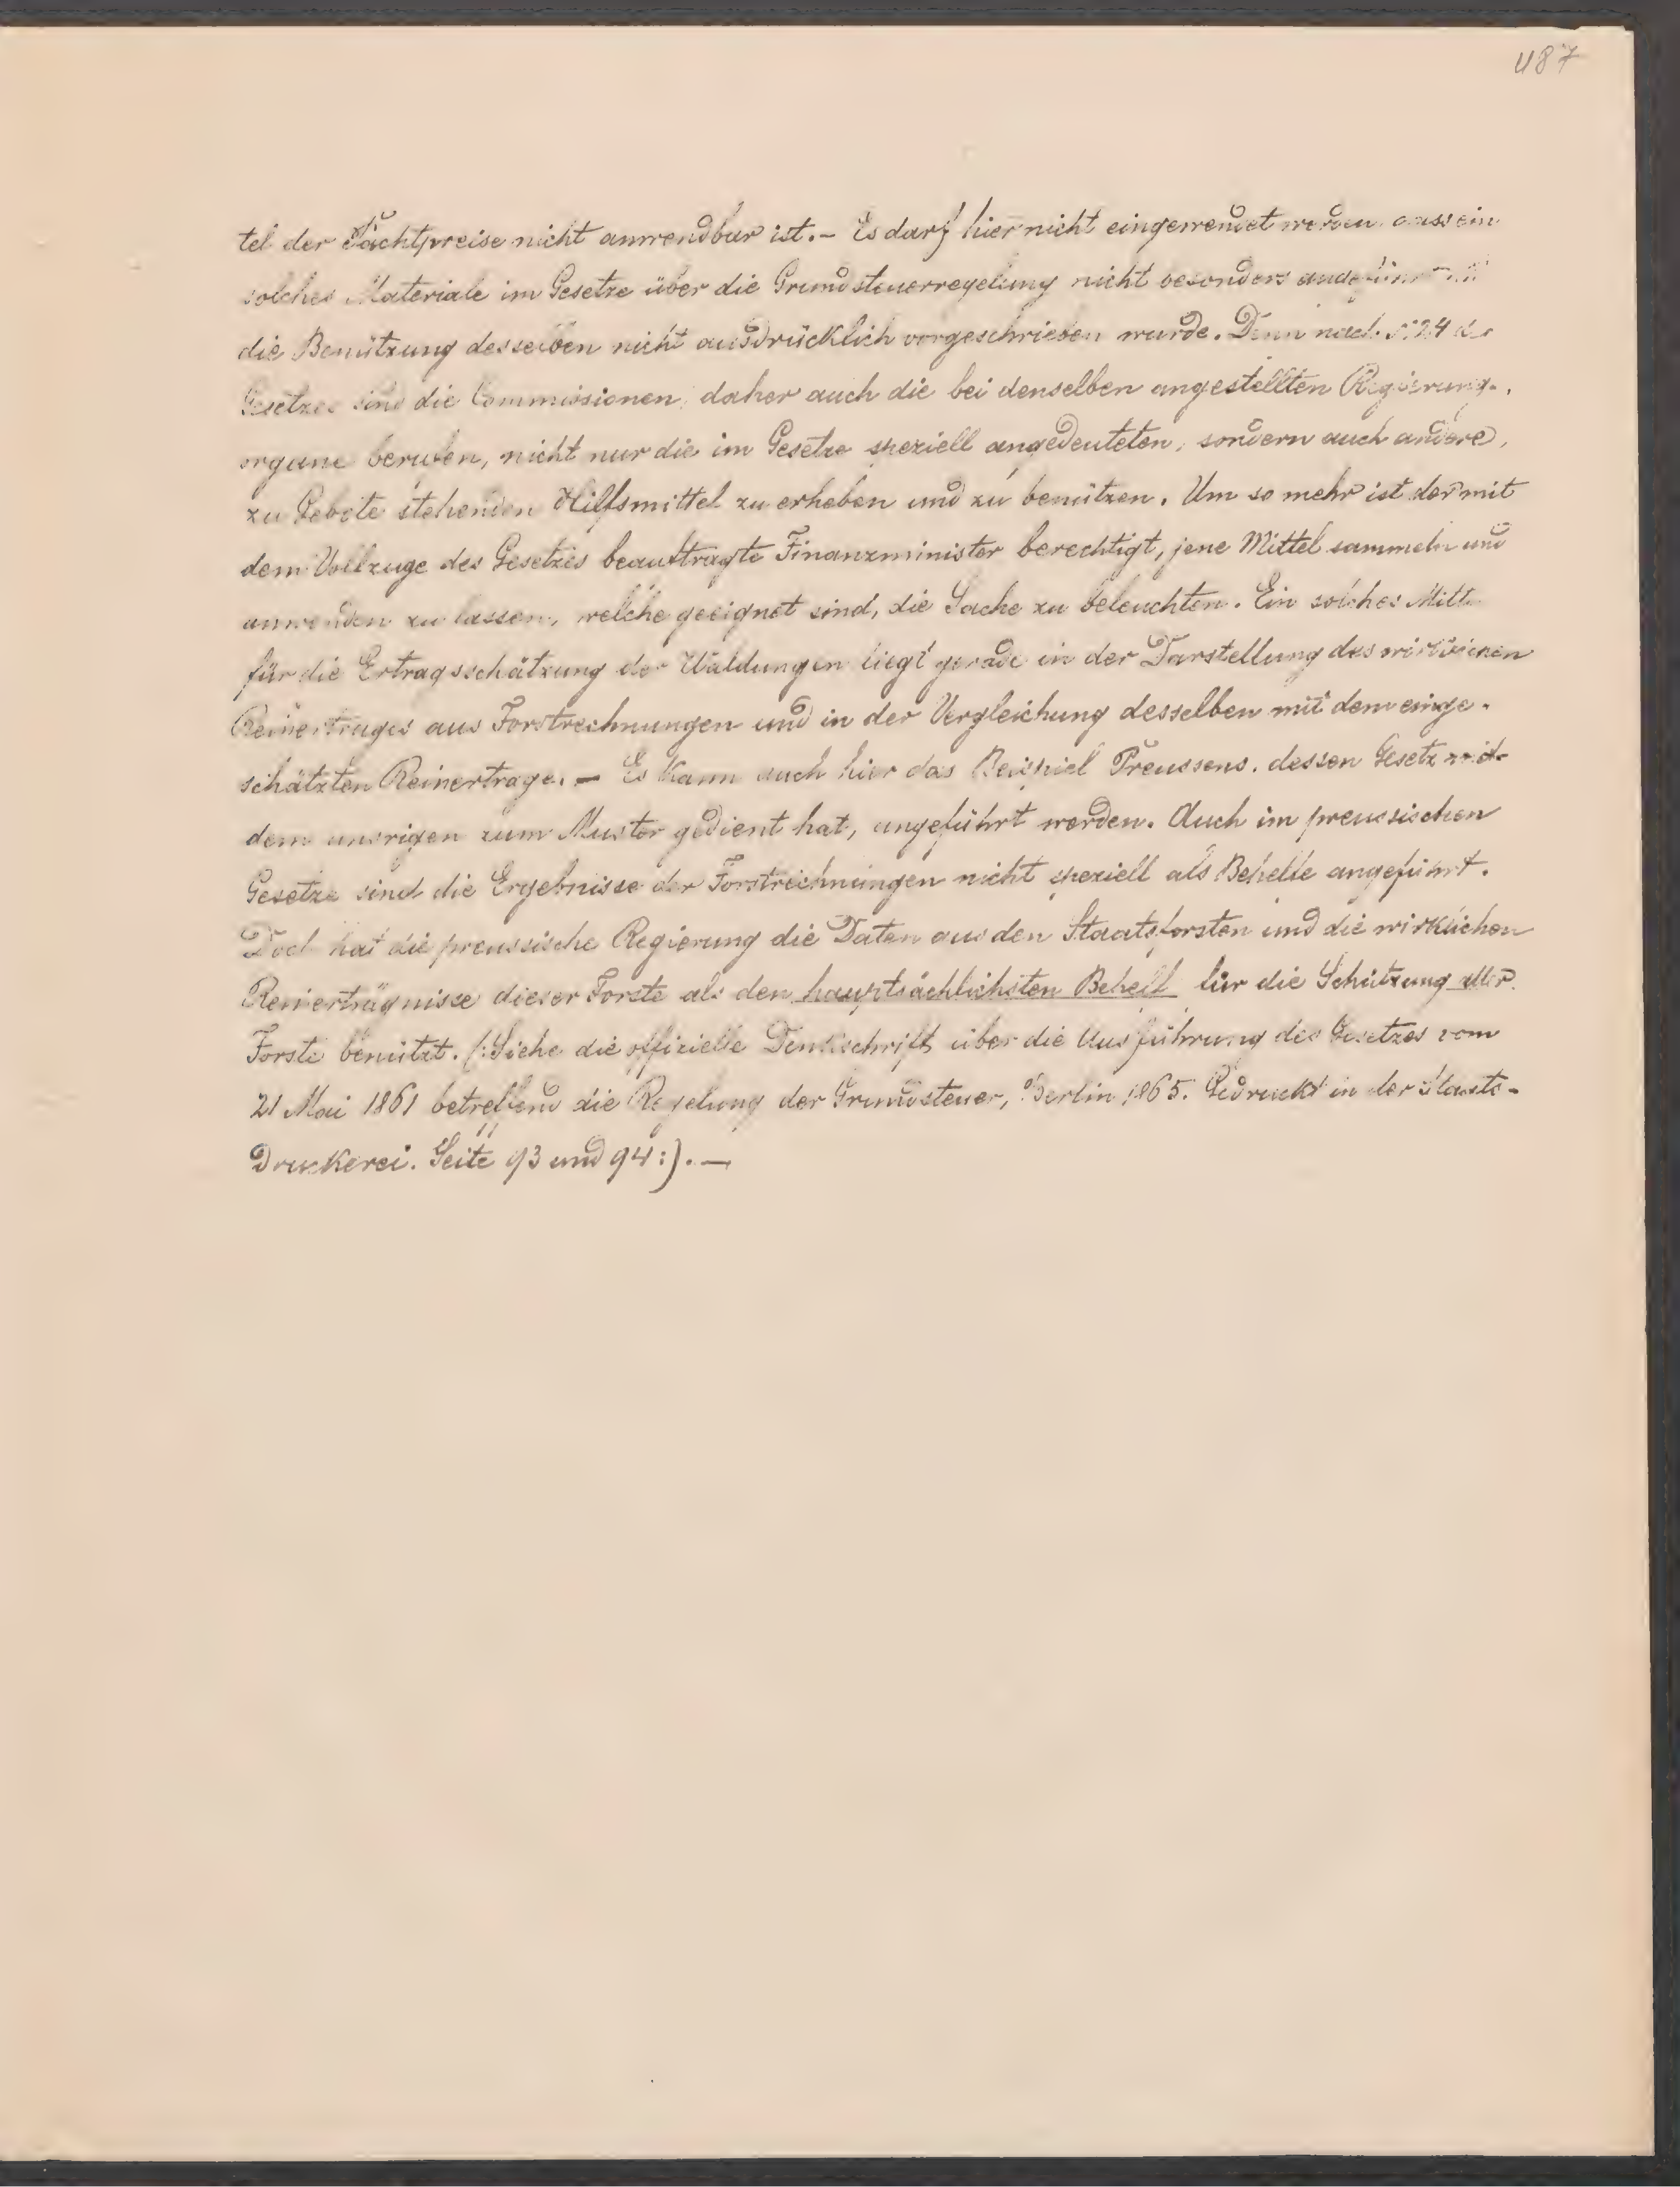 487
tel der Pachtpreise nicht anwendbar ist. – Es darf hier nicht eingewendet werden, dass ein
solches Materiale im Gesetze über die Grundsteuerregelung nicht besonders angeführt
die Benützung desselben nicht ausdrücklich vorgeschrieben wurde. Denn nach §: 24 des
Gesetzes sind die Commissionen, daher auch die bei denselben angestellten Regierungs-
organe berufen, nicht nur die im Gesetze speziell angedeuteten, sondern auch andere,
zu Gebote stehenden Hilfsmittel zu erheben und zu benützen. Um so mehr ist der mit
dem Vollzuge des Gesetzes beauftragte Finanzminister berechtigt, jene Mittel sammeln und
anwenden zu lassen, welche geeignet sind, die Sache zu beleuchten. Ein solches Mittel
für die Ertragsschätzung der Waldungen liegt gerade in der Darstellung des wirklichen
Reinertrages aus Forstrechnungen und in der Vergleichung desselben mit dem einge-
schätzten Reinertrage. – Es kann auch hier das Beispiel Preussens, dessen Gesetz
dem unsrigen zum Muster gedient hat, angeführt werden. Auch im preussischen
Gesetze sind die Ergebnisse der Forstrechnungen nicht speziell als Behelfe angeführt.
Doch hat die preussische Regierung die Daten aus den Staatsforsten und die wirklichen
Reinerträgnisse dieser Forste als den hauptsächlichsten Behelf für die Schätzung aller
Forste benützt. (: Siehe die offizielle Denkschrift über die Ausführung des Gesetzes vom
21 Mai 1861 betreffend die Regelung der Grundsteuer, Berlin 1865. Gedruckt in der Staats-
Druckerei. Seite 93 und 94 :). –